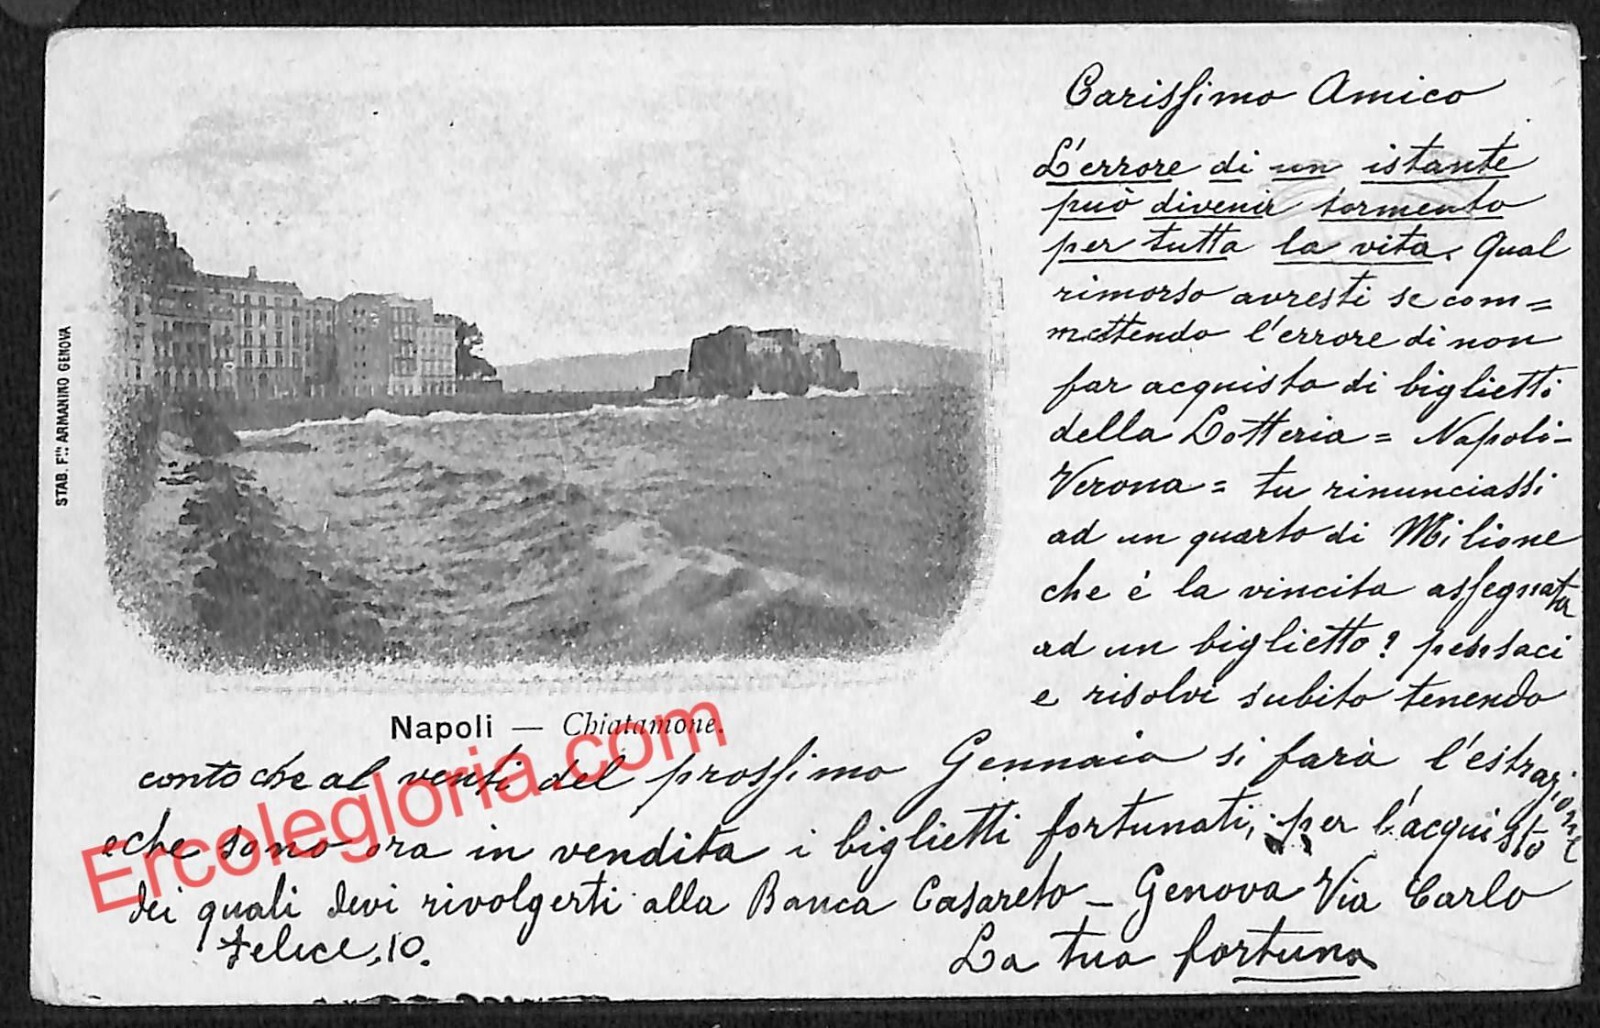 Carissimo Amico
L'errore di un istante
può divenir tormento
per tutta la vita. Qual
rimorso avresti se com=
mettendo l'errore di non
far acquisto di biglietti
della Lotteria = Napoli-
Verona = tu rinunciassi
ad un quarto di Milione
che è la vincita assegnata
ad un biglietto? pensaci
e risolvi subito tenendo
conto che al venti del prossimo Gennaio si farà l'estrazione
e che sono ora in vendita i biglietti fortunati, per l'acquisto
dei quali devi rivolgerti alla Banca Casareto - Genova Via Carlo
Felice, 10.
La tua fortuna
Napoli — Chiatamone.
STAB. F.lli ARMANINO GENOVA
Ercolegloria.com